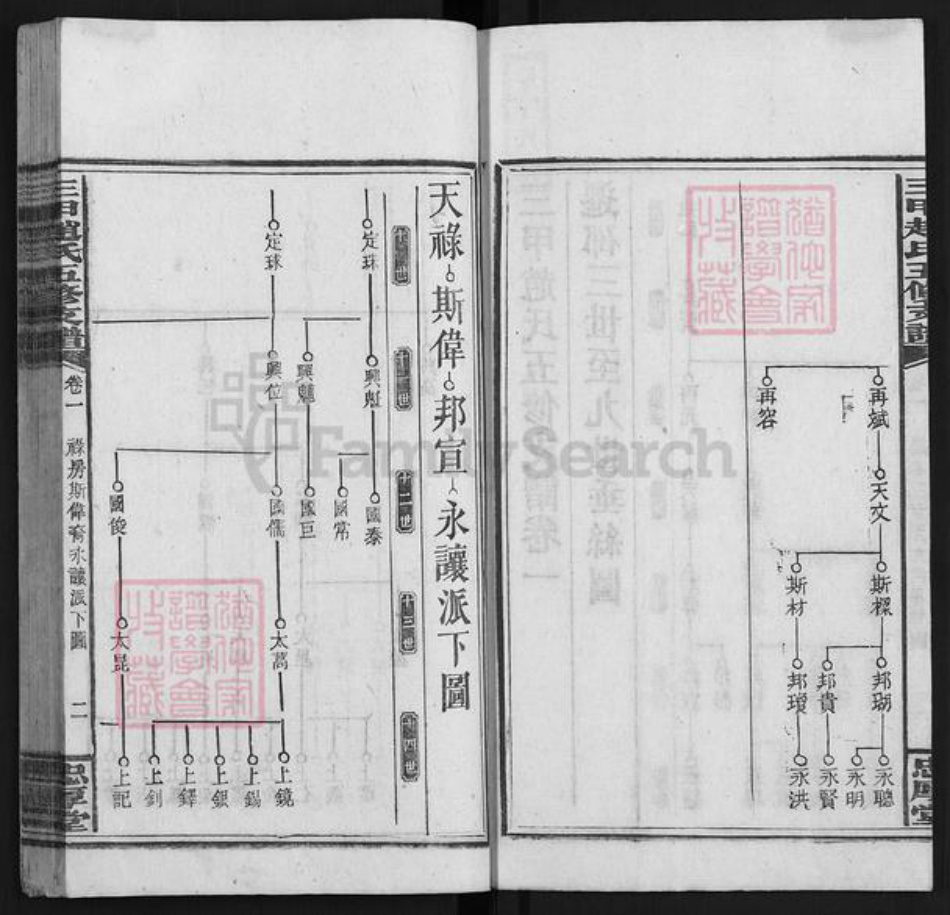 三甲趙氏五修支譜
忠厚堂
再斌
再容
天文
斯檪
斯材
邦瑚
邦貴
邦瓊
永聰
永明
永賢
永洪
天祿 斯偉 邦宣 永讓派下圖
十世
十一世
十二世
十三世
十四世
定珠
定球
興魁
興位
國泰
國常
國巨
國儒
國俊
太萬
太崑
上鏡
上錫
上銀
上鐸
上釗
上記
三甲趙氏五修支譜
卷一
祿房斯偉裔永讓派下圖
二
忠厚堂
FamilySearch